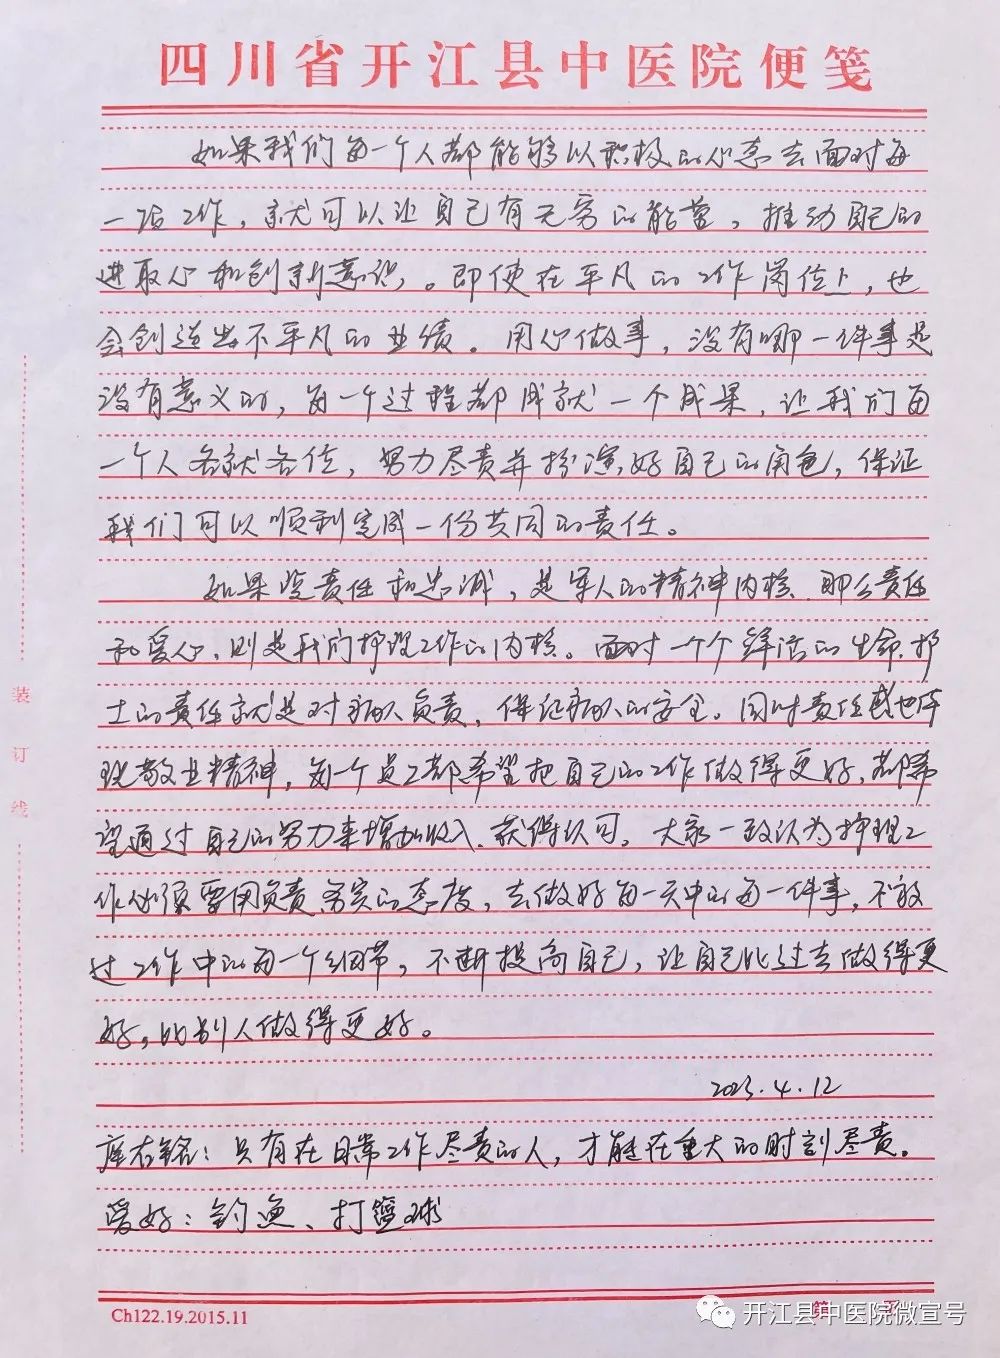 四川省开江县中医院便笺
如果我们每一个人都能够以积极的心态去面对每
一活工作，就可以让自己有无穷的能量，推动自己的
进取心和创新意识，。即使在平凡的工作岗位上，也
会创造出不平凡的业绩。用心做事，没有哪一件事是
没有意义的，每一个过程都成就一个成果，让我们每
一个人各就各位，努力尽责并扮演好自己的角色，保证
我们可以顺利完成一份共同的责任。
如果说责任和忠诚，是军人的精神内核，那么责任
和爱心，则是我们护理工作的内核。面对一个个鲜活的生命，护
士的责任就是对病人负责，保证病人的安全。同时责任感也体
现敬业精神，每一个员工都希望把自己的工作做得更好，都希
望通过自己的努力来增加收入、获得认可。大家一致认为护理工
作必须要用负责、务实的态度，去做好每一天中的每一件事，不放
过工作中的每一个细节，不断提高自己，让自己比过去做得更
好，比别人做得更好。
2023.4.12
座右铭：只有在日常工作尽责的人，才能在重大的时刻尽责。
爱好：钓鱼、打篮球
装
订
线
Ch122.19.2015.11
第 页
开江县中医院微宣号